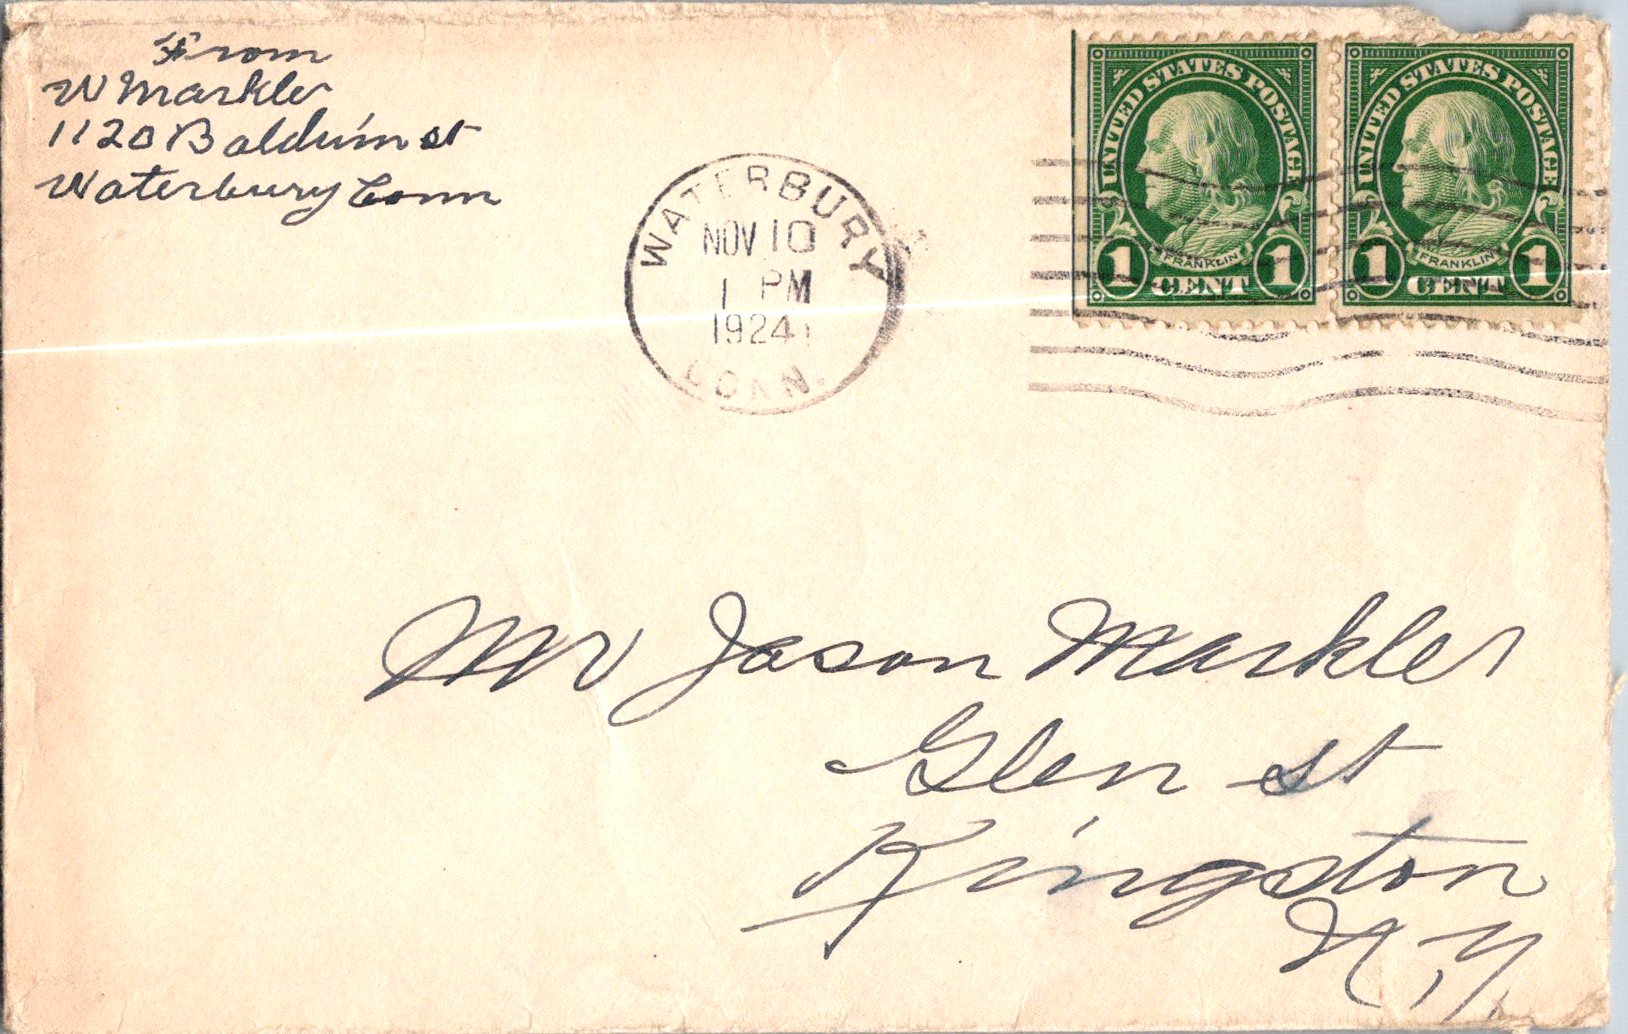 From
W Markler
1120 Baldwin st
Waterbury Conn
WATERBURY
NOV 10
1 PM
1924
CONN.
UNITED STATES POSTAGE
FRANKLIN
1 CENT 1
UNITED STATES POSTAGE
FRANKLIN
1 CENT 1
Mr Jason Markler
Glen st
Kingston
N.Y.